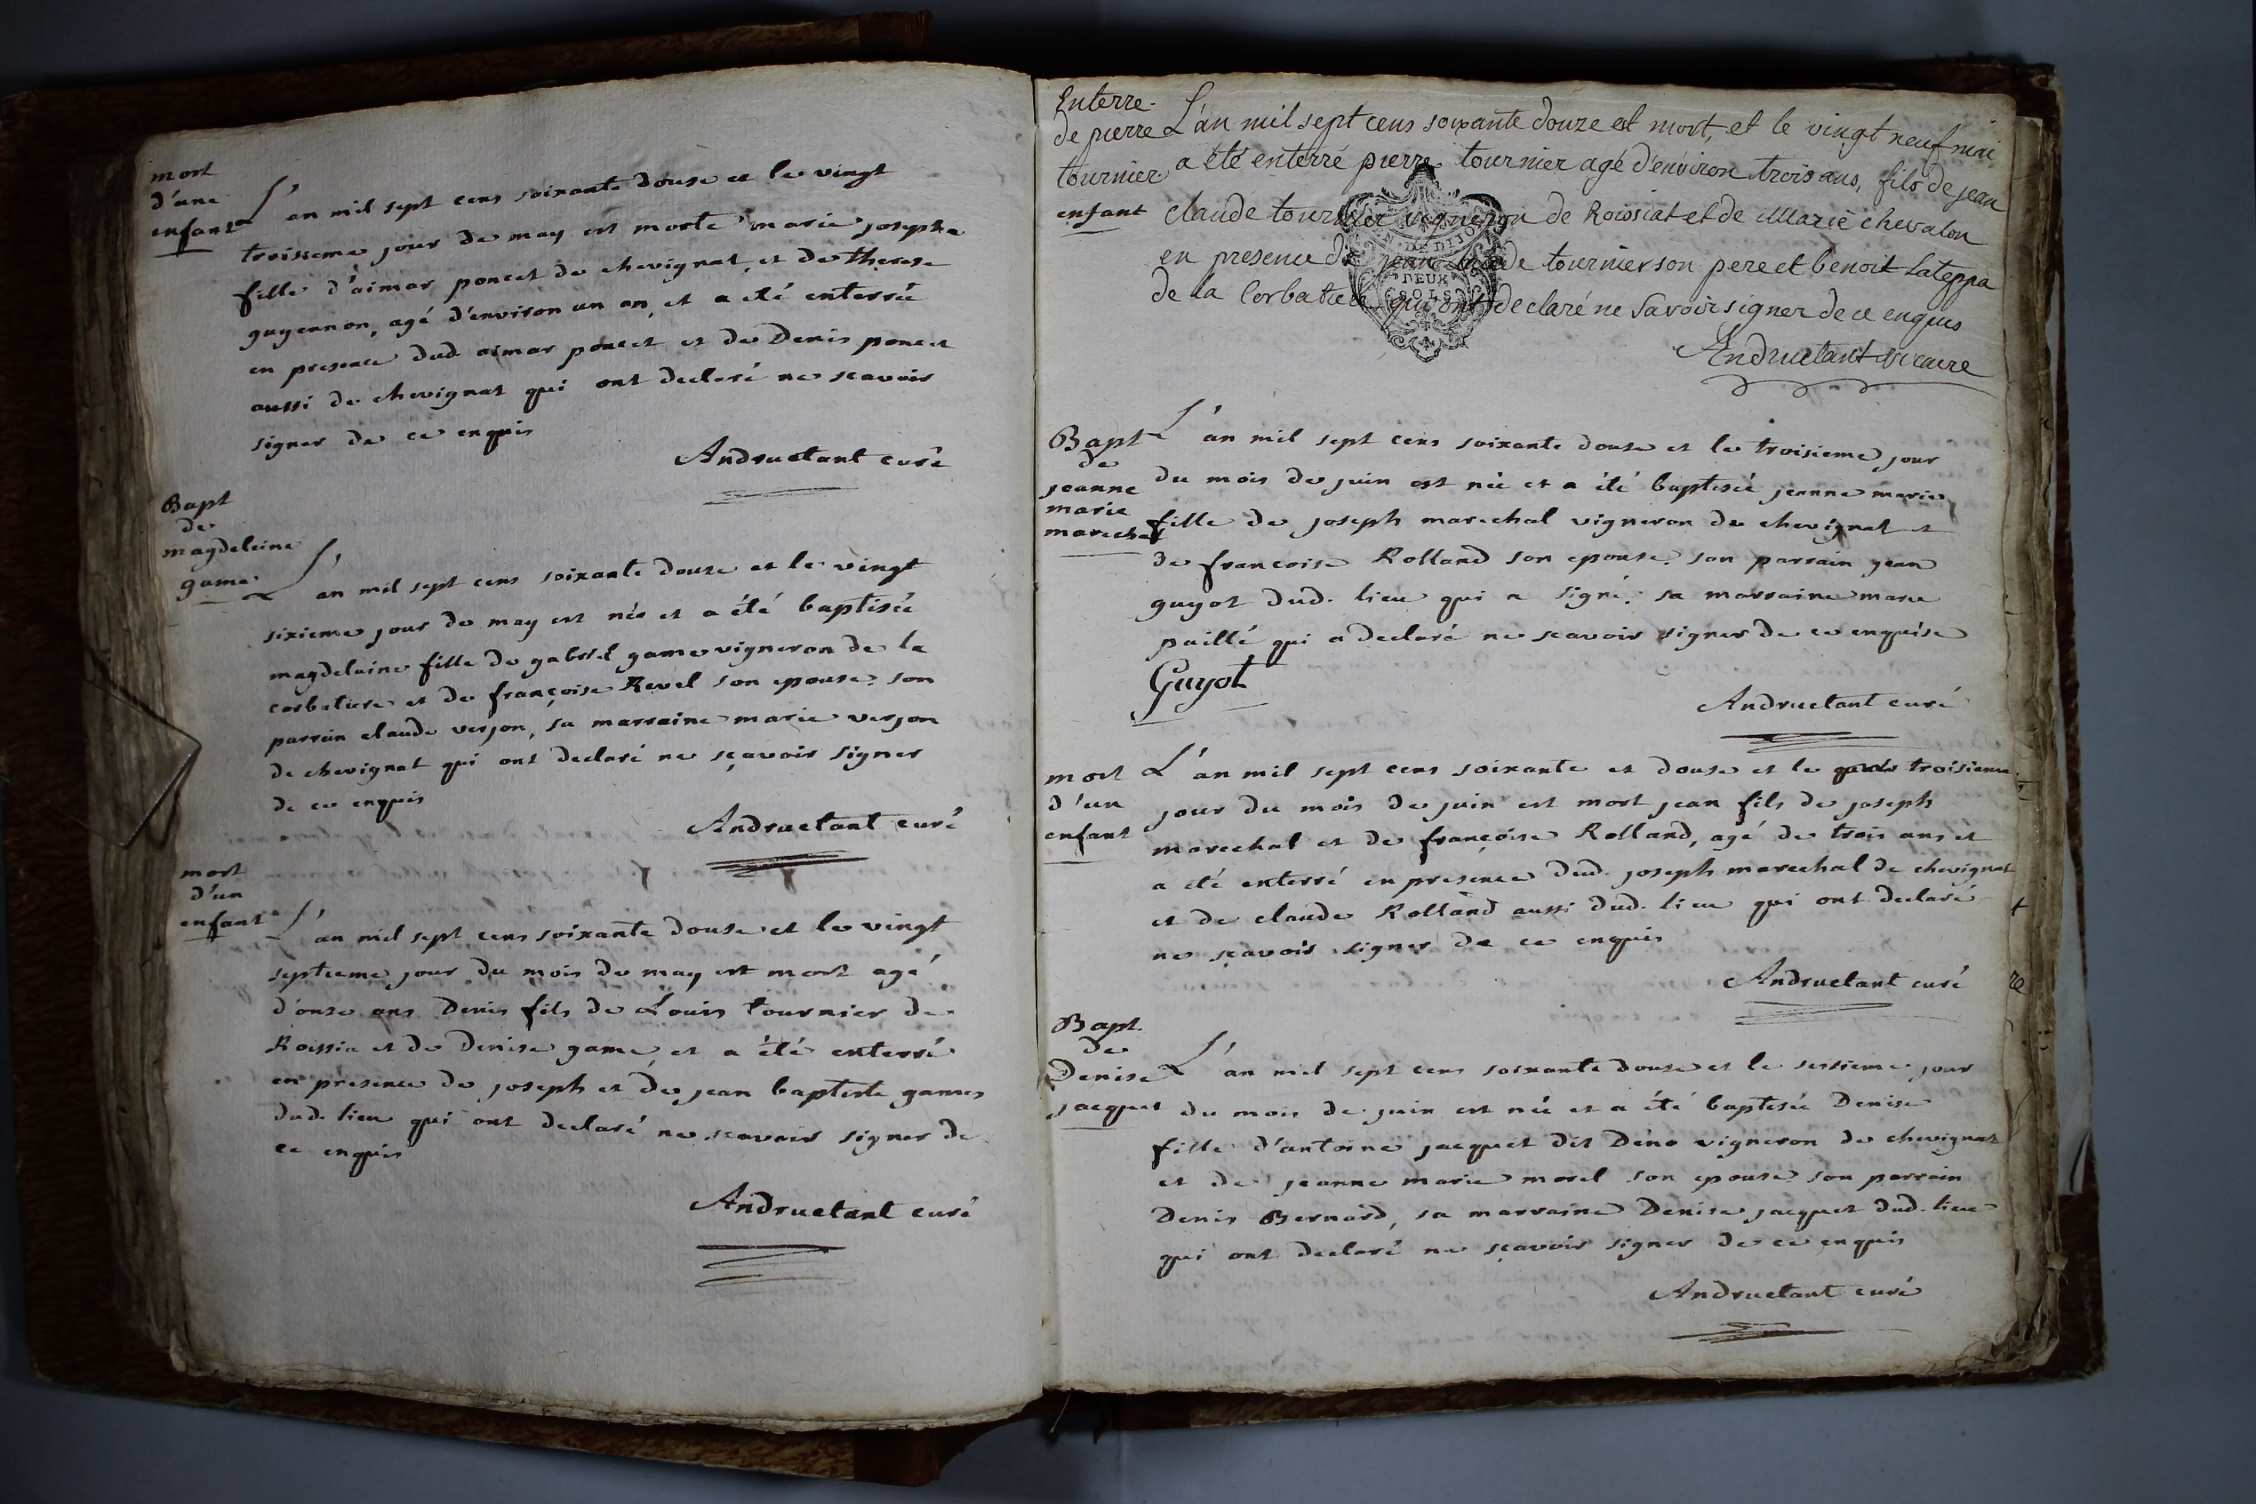 mort
d'une
enfant
L'an mil sept cens soixante douse et le vingt
troisieme jour de may est morte marie josepha
fille d'aimar poncet de chevignat et de therese
guyennon, agé d'environ un an, et a eté enterrée
en presence dud. aimar poncet et de Denis poncet
aussi de chevignat qui ont declaré ne scavoir
signer de ce enquis
Andruetant curé
Bapt
de
magdeleine
game
L'an mil sept cens soixante douze et le vingt
sixieme jour de may est née et a été baptisée
magdelaine fille de gabriel game vigneron de la
corbatiere et de françoise Revel son epouse, son
parrain claude verjon, sa marraine marie verjon
de chevignat qui ont declaré ne sçavoir signer
de ce enquis
Andruetant curé
mort
d'un
enfant
L'an mil sept cens soixante douse et le vingt
septieme jour du mois de may est mort agé
d'onze ans Denis fils de Louis tournier de
Roissia et de Denise game et a été enterré
en presence de joseph et de jean baptiste games
dud. lieu qui ont declaré ne scavoir signer de
ce enquis
Andruetant curé
Enterre.
de pierre
tournier
enfant
L'an mil sept cens soixante douze est mort, et le vingt neuf mai
a été enterré pierre tournier agé d'environ trois ans, fils de jean
claude tournier vigneron de Roissiat et de Marie chevalon
en presence de jean claude tournier son pere et benoit Lateppa
de la Corbatiere qui ont declaré ne Savoir signer de ce enquis
Andruetant vicaire
DEUX
SOLS
Bapt
de
jeanne
marie
marechal
L'an mil sept cens soixante douse et le troisieme jour
du mois de juin est née et a été baptisée jeanne marie
fille de joseph marechal vigneron de chevignat et
de francoise Rolland son epouse, son parrain jean
guyot dud. lieu qui a signé, sa marraine marie
paillé qui a declaré ne scavoir signer de ce enquise
Guyot
Andruetant curé
mort
d'un
enfant
L'an mil sept cens soixante et douse et le troisieme
jour du mois de juin est mort jean fils de joseph
marechal et de françoise Rolland, agé de trois ans et
a été enterré en presence dud. joseph marechal de chevignat
et de claude Rolland aussi dud. lieu qui ont declaré
ne sçavoir signer de ce enquis
Andruetant curé
Bapt.
de
Denise
jacquet
L'an mil sept cens soixante douze et le sessieme jour
du mois de juin est née et a été baptisée Denise
fille d'antoine jacquet dit Déno vigneron de chevignat
et de jeanne marie morel son epouse son parrain
Denis Bernard, sa marraine Denise jacquet dud. lieu
qui ont declaré ne sçavoir signer de ce enquis
Andruetant curé